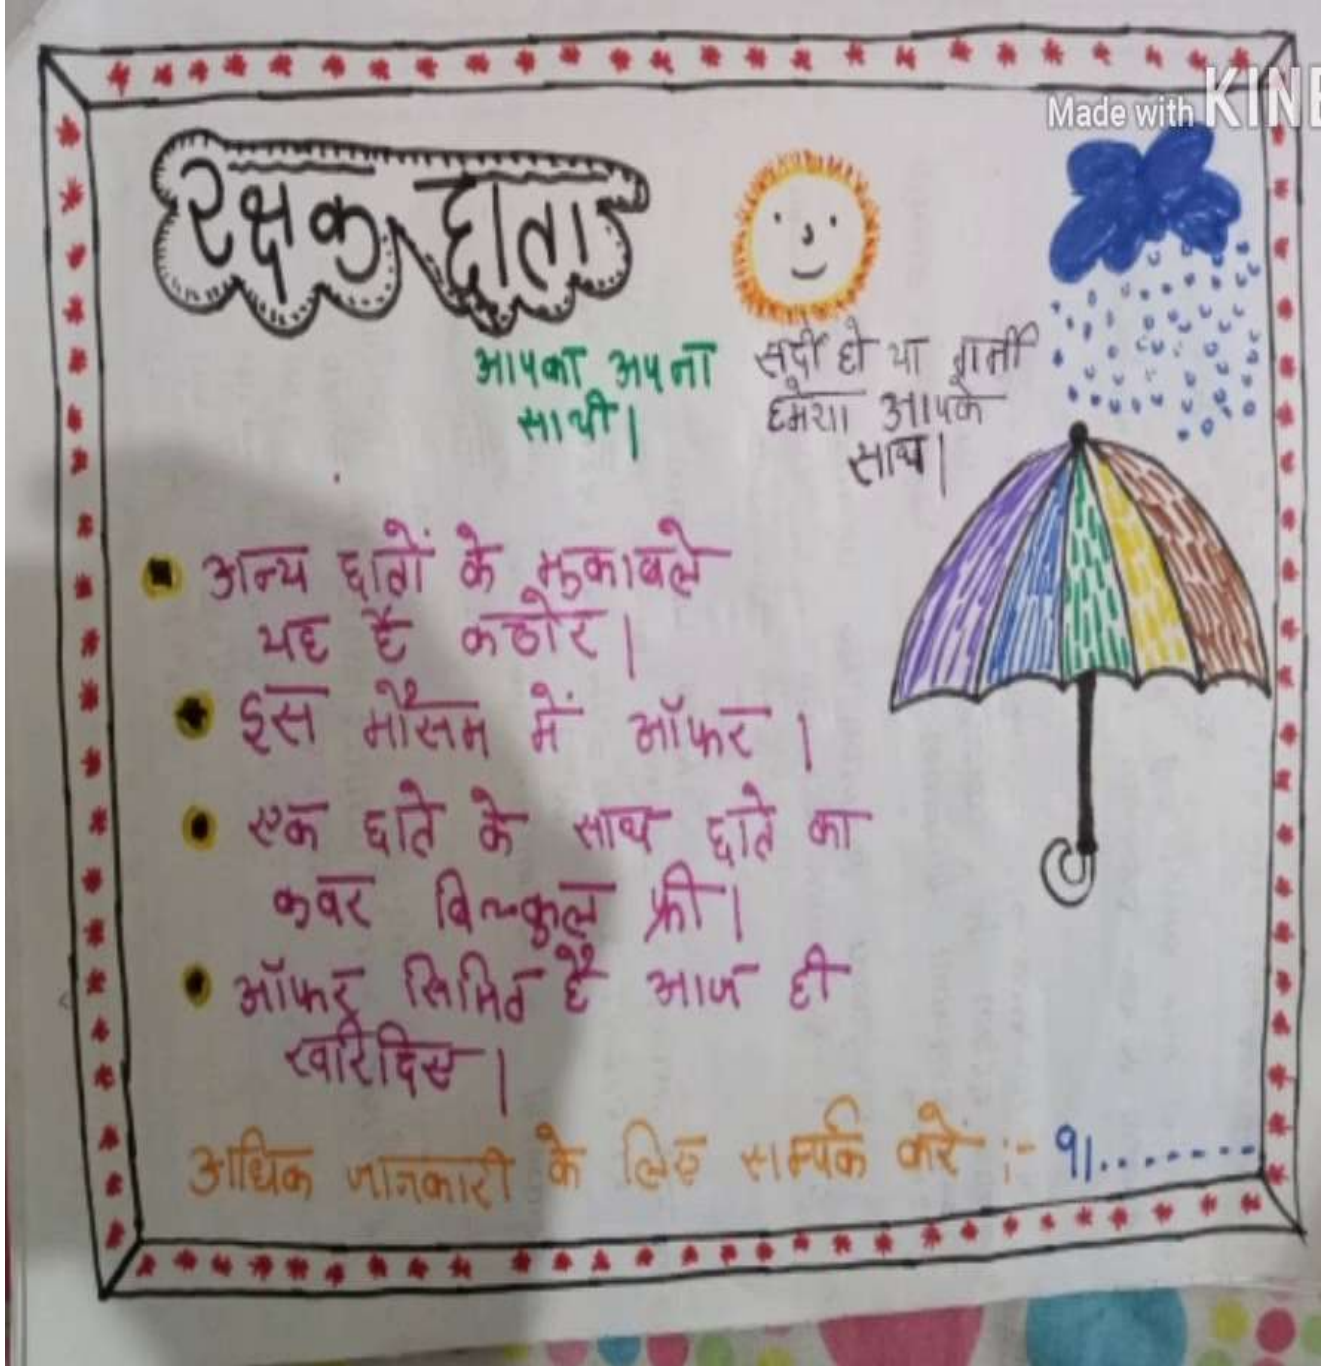 Made with KINE
रक्षक छाता
आपका अपना
साथी।
सर्दी हो या गर्मी
हमेशा आपके
साथ।
अन्य छातों के मुकाबले
यह है कठोर।
इस मौसम में ऑफर ।
एक छाते के साथ छाते का
कवर बिल्कुल फ्री।
ऑफर सिमित है आज ही
खरिदिए।
अधिक जानकारी के लिए सम्पर्क करें :- 91.......